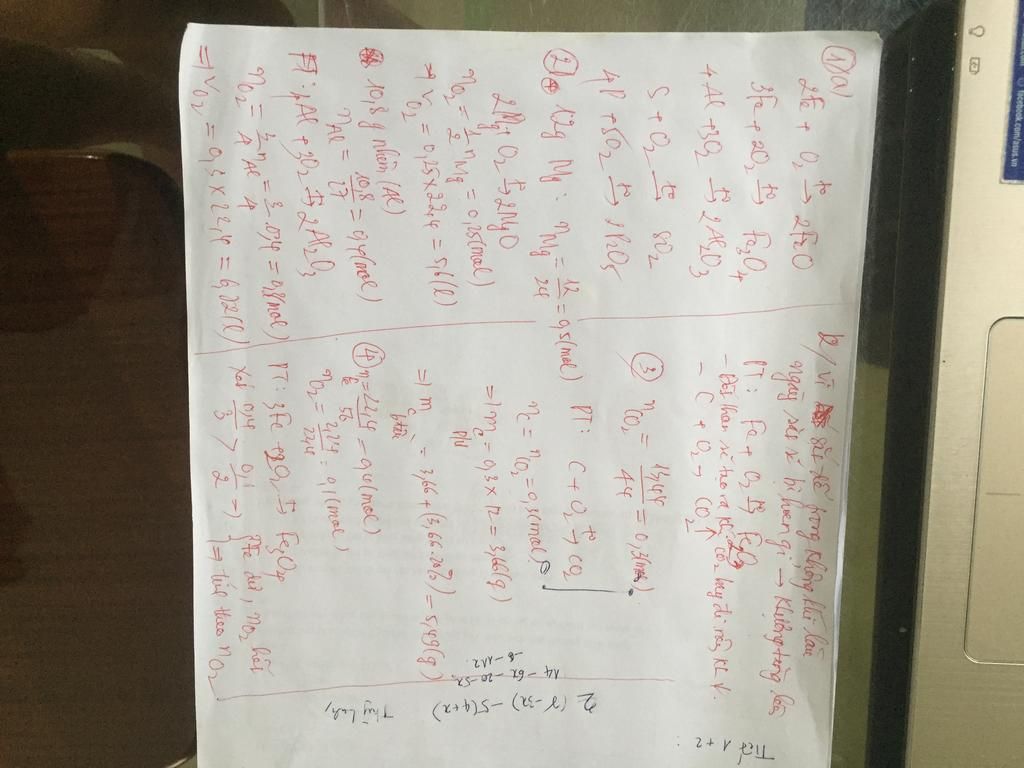 1) a)
2Fe + O₂ t°→ 2FeO
3Fe + 2O₂ t°→ Fe₃O₄
4Al + 3O₂ t°→ 2Al₂O₃
S + O₂ t°→ SO₂
4P + 5O₂ t°→ P₂O₅
2) 12g Mg : nMg = 12/24 = 0,5(mol)
2Mg + O₂ t°→ 2MgO
nO₂ = 1/2 nMg = 0,25(mol)
⇒ VO₂ = 0,25 × 22,4 = 5,6(l)
10,8 g nhôm (Al)
nAl = 10,8/27 = 0,4(mol)
PT: 4Al + 3O₂ t°→ 2Al₂O₃
nO₂ = 3/4 nAl = 3/4 . 0,4 = 0,3(mol)
⇒ VO₂ = 0,3 × 22,4 = 6,72(l)
b/ Vì sắt để trong không khí lâu
ngày sẽ bị hoen gỉ → khối lượng
PT: Fe + O₂ t°→
- Đốt than sẽ tạo ra khí CO₂ bay đi
- C + O₂ → CO₂↑
3) nCO₂ = /44 = 0,3(mol)
PT: C + O₂ t°→ CO₂
nC = nO₂ = 0,3(mol)
⇒ mC = 0,3 × 12 = 3,66(g)
p/ư
⇒ mC = 3,66 + (3,66.20%) = (g)
4) nFe = 22,4/56 = 0,4(mol)
nO₂ = 2,24/22,4 = 0,1(mol)
PT: 3Fe + 2O₂ t°→ Fe₃O₄
Xét 0,4/3 > 0,1/2 ⇒ Fe dư, nO₂ hết
⇒ tính theo nO₂
Tiết 1 + 2 :
2 (7 - 3x) - 5(4 + x)
14 - 6x - 20 - 5x
- 6 - 11x